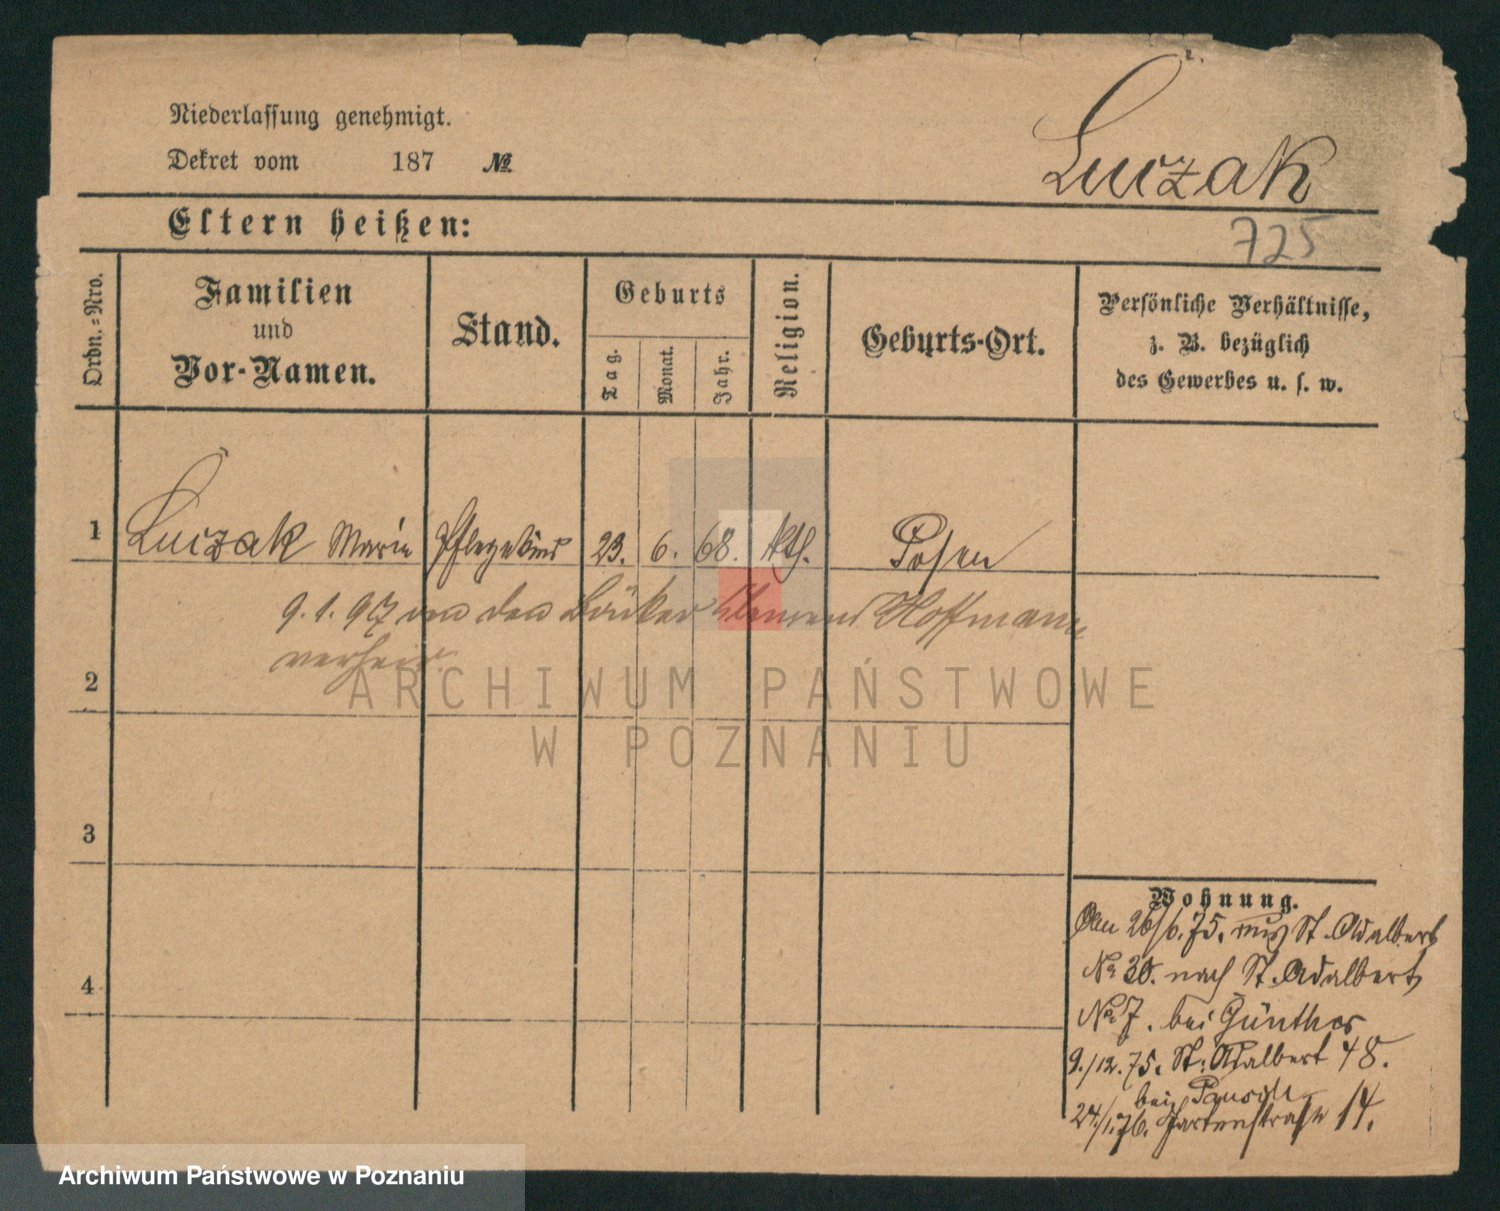 Niederlassung genehmigt.
Dekret vom 187 №
Luczak
Eltern heißen:
725
Ordn.-Nro.
Familien
und
Vor-Namen.
Stand.
Geburts
Tag.
Monat.
Jahr.
Religion.
Geburts-Ort.
Persönliche Verhältnisse,
z. B. bezüglich
des Gewerbes u. s. w.
1 Luczak Marie Pflegekind 23. 6. 68. kth. Posen
9.1.97 den Bäcker Hoffmann
verheir.
2
3
4
ARCHIWUM PAŃSTWOWE
W POZNANIU
Wohnung.
26/6.75. aus St. Adalbert
No 30. nach St. Adalbert
No 7. bei Günther
9./12.75. St. Adalbert 48.
bei
24./1.76. Gartenstraße 14.
Archiwum Państwowe w Poznaniu